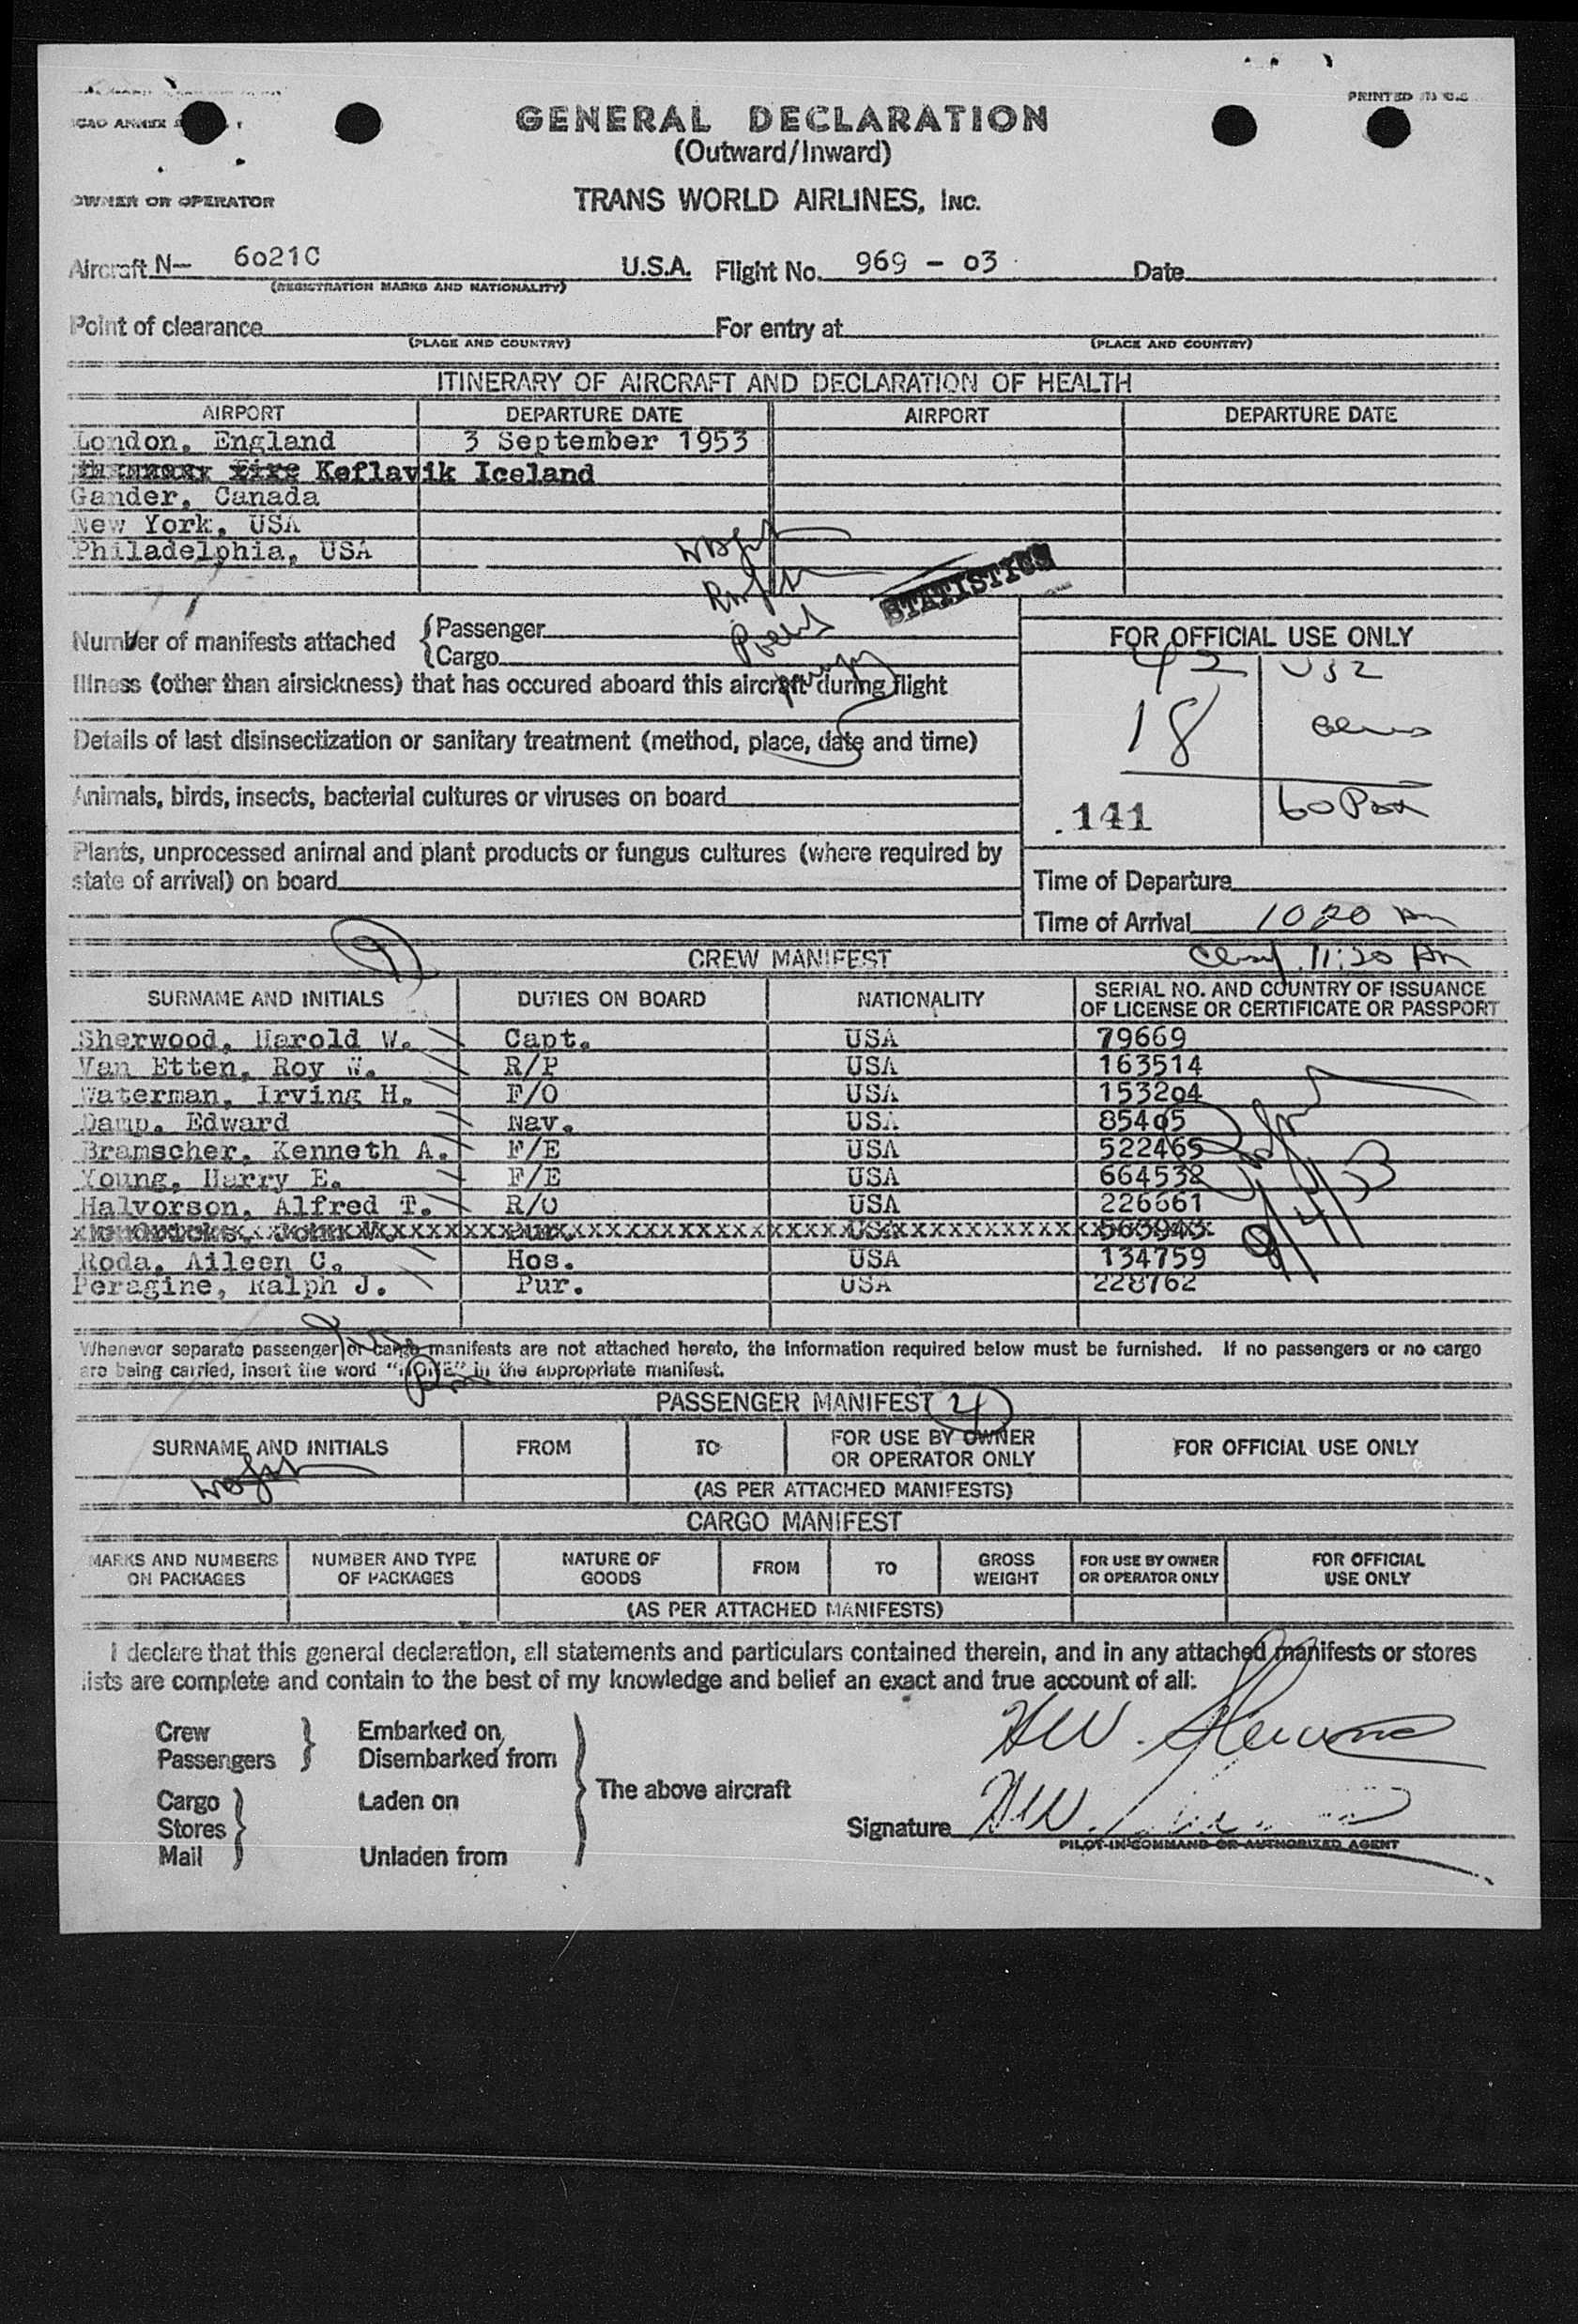 PRINTED IN U.S.
ICAO ANNEX
GENERAL DECLARATION
(Outward/Inward)
OWNER OR OPERATOR
TRANS WORLD AIRLINES, INC.
Aircraft N— 6021C U.S.A. Flight No. 969 - 03 Date
(REGISTRATION MARKS AND NATIONALITY)
Point of clearance For entry at
(PLACE AND COUNTRY) (PLACE AND COUNTRY)
ITINERARY OF AIRCRAFT AND DECLARATION OF HEALTH
AIRPORT DEPARTURE DATE AIRPORT DEPARTURE DATE
London, England 3 September 1953
Keflavik Iceland
Gander, Canada
New York, USA
Philadelphia, USA
STATISTICS
Number of manifests attached {Passenger
{Cargo
FOR OFFICIAL USE ONLY
42 USZ
18
60 Pax
.141
Illness (other than airsickness) that has occured aboard this aircraft during flight
Details of last disinsectization or sanitary treatment (method, place, date and time)
Animals, birds, insects, bacterial cultures or viruses on board
Plants, unprocessed animal and plant products or fungus cultures (where required by
state of arrival) on board
Time of Departure
Time of Arrival 10 20 Am
11:20 Am
9
CREW MANIFEST
SURNAME AND INITIALS DUTIES ON BOARD NATIONALITY SERIAL NO. AND COUNTRY OF ISSUANCE OF LICENSE OR CERTIFICATE OR PASSPORT
Sherwood, Harold W. Capt. USA 79669
Van Etten, Roy W. R/P USA 163514
Waterman, Irving H. F/O USA 153204
Damp, Edward Nav. USA 85405
Bramscher, Kenneth A. F/E USA 522465
Young, Harry E. F/E USA 664538
Halvorson, Alfred T. R/O USA 226661
John W. Pur. USA 563943
Roda, Aileen C. Hos. USA 134759
Peragine, Ralph J. Pur. USA 228762
9/4/53
Whenever separate passenger or cargo manifests are not attached hereto, the information required below must be furnished. If no passengers or no cargo
are being carried, insert the word "NONE" in the appropriate manifest.
PASSENGER MANIFEST 4
SURNAME AND INITIALS FROM TO FOR USE BY OWNER OR OPERATOR ONLY FOR OFFICIAL USE ONLY
(AS PER ATTACHED MANIFESTS)
CARGO MANIFEST
MARKS AND NUMBERS ON PACKAGES NUMBER AND TYPE OF PACKAGES NATURE OF GOODS FROM TO GROSS WEIGHT FOR USE BY OWNER OR OPERATOR ONLY FOR OFFICIAL USE ONLY
(AS PER ATTACHED MANIFESTS)
I declare that this general declaration, all statements and particulars contained therein, and in any attached manifests or stores
lists are complete and contain to the best of my knowledge and belief an exact and true account of all:
Crew Embarked on,
Passengers Disembarked from
The above aircraft
Cargo Laden on
Stores
Mail Unladen from
HW. Sherwood
Signature HW.
PILOT-IN-COMMAND OR AUTHORIZED AGENT